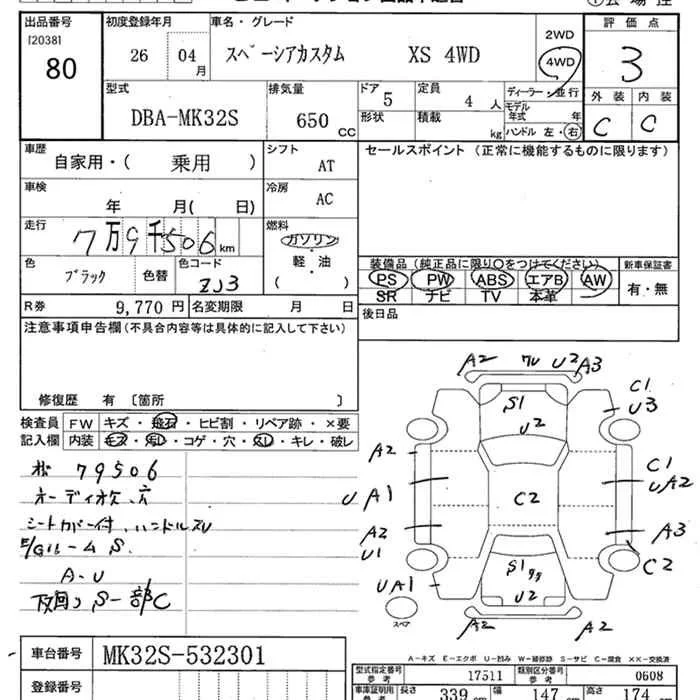 出品番号
12038I
80
初度登録年月
26 04月
車名・グレード
スペーシアカスタム XS 4WD
2WD
4WD
評価点
3
外装 内装
C C
型式
DBA-MK32S
排気量
650 CC
ドア
5
形状
定員
4 人
積載
kg
ディーラー・並行
モデル年式 年
ハンドル 左・右
車歴
自家用・( 乗用 )
シフト
AT
セールスポイント (正常に機能するものに限ります)
車検
年 月( 日)
冷房
AC
走行
7万9千506 km
燃料
ガソリン
・
軽・油
( )
色
ブラック
色替
色コード
ZJ3
装備品 (純正品に限り○をつけてください)
PS PW ABS エアB AW
SR ナビ TV 本革
新車保証書
有・無
R券
9,770 円
名変期限 月 日
後日品
注意事項申告欄(不具合内容等は具体的に記入して下さい)
修復歴 有 〔箇所 〕
検査員記入欄
FW キズ・飛石・ヒビ割・リペア跡・×要
内装 キズ・汚レ・コゲ・穴・スレ・キレ・破レ
79506
オーディオ欠.穴
シートカバー付.ハンドルスレ
E/Gルーム S.
A-U
下回り S-一部C
A2 ワレ U2 A3
S1
U2
C1
U3
A2
U A1
C2
C1
UA2
A2
U1
A3
C2
UA1
S1
U2
A2 A2
スペア
A-キズ E-エクボ U-凹み W-補修跡 S-サビ C-腐食 XX-交換済
車台番号
MK32S-532301
登録番号
型式指定番号 参考
17511
類別区分番号 参考
0608
車庫証明用 参考
長さ 339 cm
幅 147 cm
高さ 174 cm